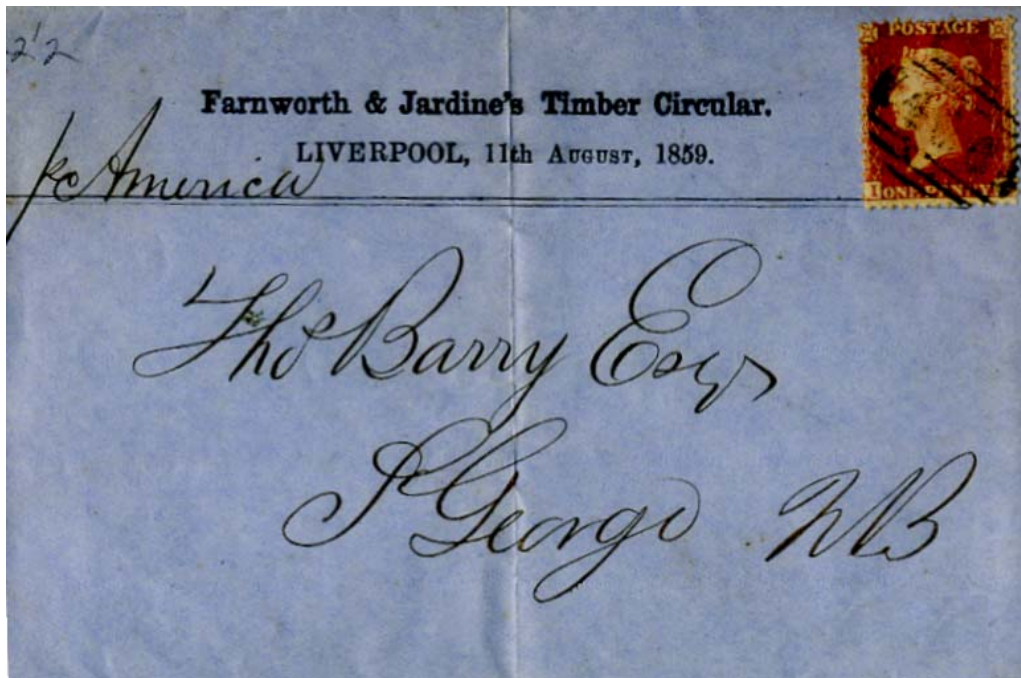 2'2
POSTAGE
Farnworth & Jardine's Timber Circular.
LIVERPOOL, 11th AUGUST, 1859.
pr America
ONE PENNY
Thos Barry Esqr
St George NB